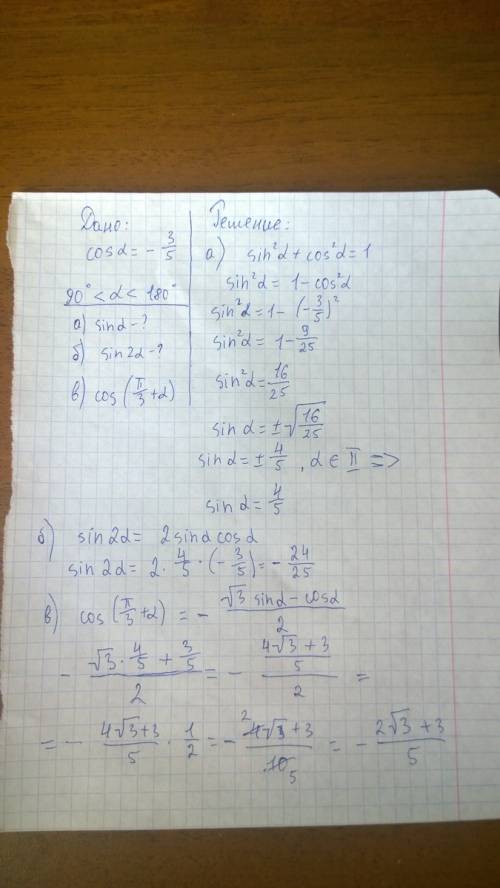 Дано:
cosα = - 3/5
90° < α < 180°
а) sinα - ?
б) sin2α - ?
в) cos(π/3 + α)
Решение:
а) sin²α + cos²α = 1
sin²α = 1 - cos²α
sin²α = 1 - (-3/5)²
sin²α = 1 - 9/25
sin²α = 16/25
sinα = ±√(16/25)
sinα = ± 4/5, α ∈ II =>
sinα = 4/5
б) sin2α = 2sinα cosα
sin2α = 2 · 4/5 · (-3/5) = - 24/25
в) cos(π/3 + α) = - (√3 sinα - cosα)/2
- (√3 · 4/5 + 3/5)/2 = - ((4√3 + 3)/5)/2 =
= - (4√3 + 3)/5 · 1/2 = - (²4√3 + 3)/(10 5) = - (2√3 + 3)/5